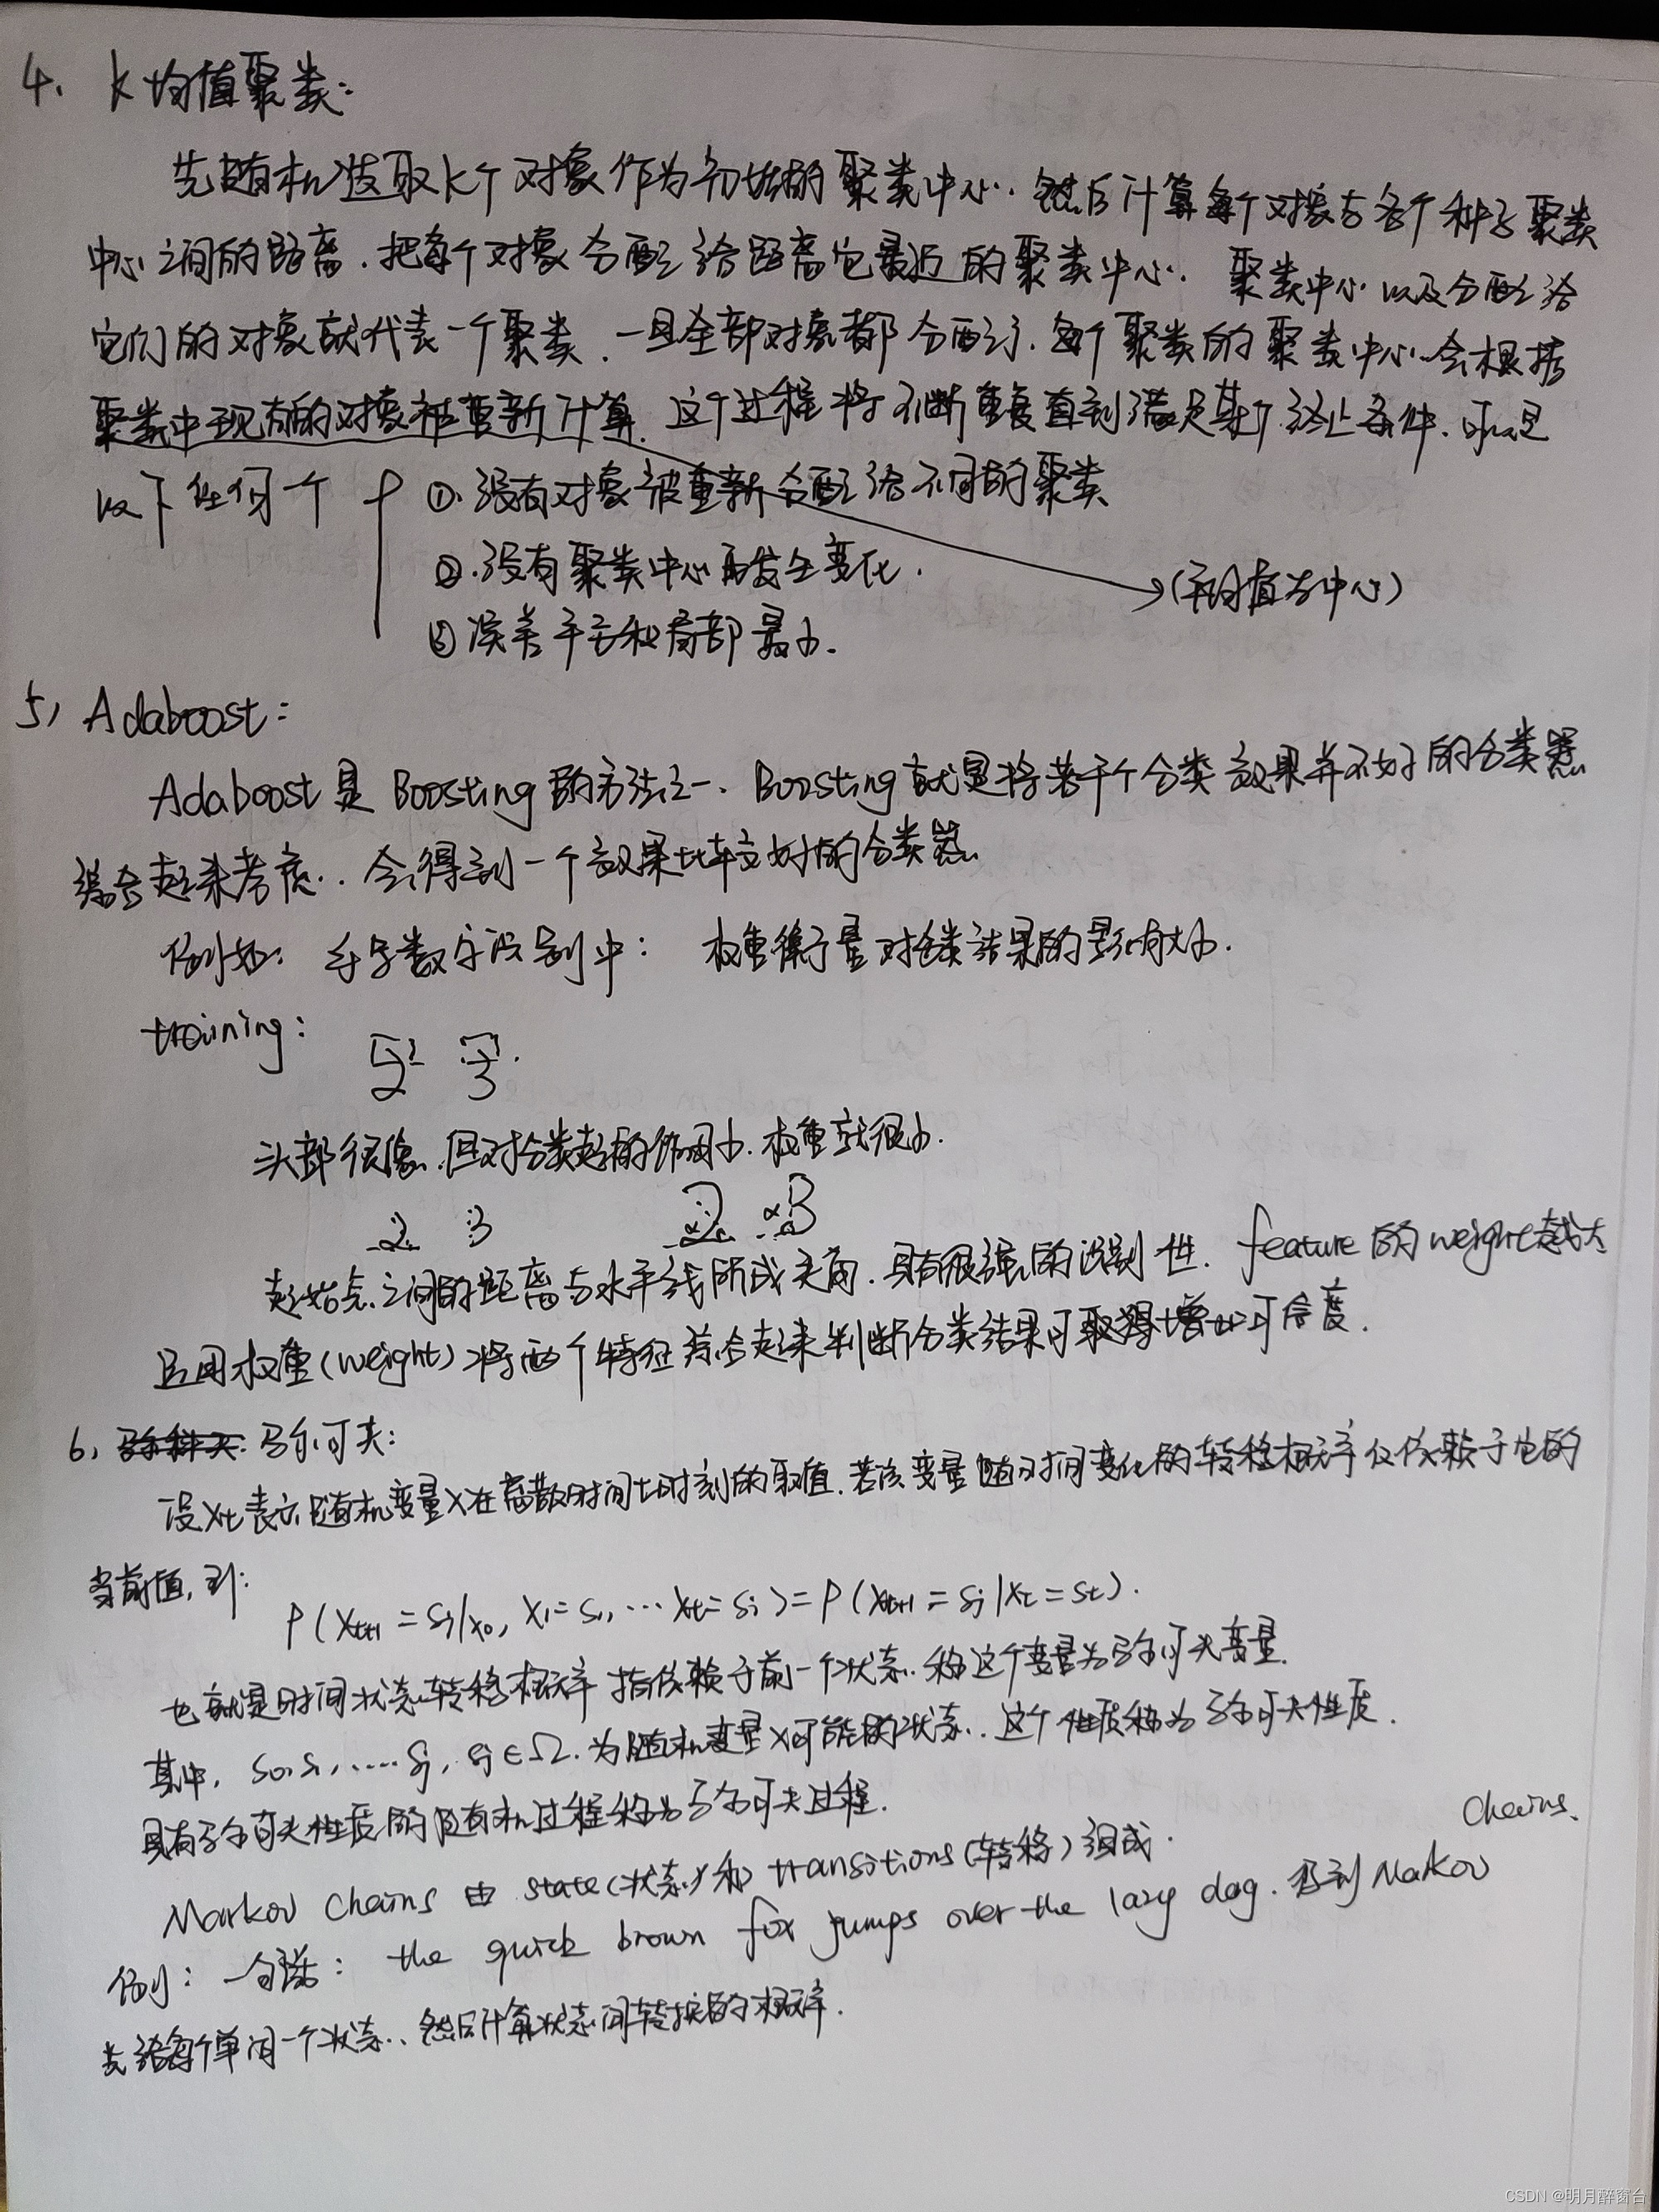 4. k均值聚类:
先随机选取k个对象作为初始的聚类中心. 然后计算每个对象与各个种子聚类
中心之间的距离. 把每个对象分配给距离它最近的聚类中心. 聚类中心以及分配给
它们的对象就代表一个聚类. 一旦全部对象都分配了. 每个聚类的聚类中心会根据
聚类中现有的对象被重新计算. 这个过程将不断重复直到满足某个终止条件. 可以是
以下任何一个 ①. 没有对象被重新分配给不同的聚类
②. 没有聚类中心再发生变化.
(平均值为中心)
③ 误差平方和局部最小.
5, Adaboost:
Adaboost是Boosting的方法之一. Boosting就是将若干个分类效果并不好的分类器
综合起来考虑. 会得到一个效果比较好的分类器.
例如: 手写数字识别中: 权重衡量对分类结果的影响大小.
training:
2 3
头部很像. 但对分类起的作用小. 权重就很小.
2 3 2 3
起始点之间的距离与水平线所成夹角. 具有很强的识别性. feature的weight越大
且用权重(weight)将两个特征综合起来判断分类结果可取得增加可信度.
6, 马尔可夫:
设Xt表示随机变量X在离散时间t时刻的取值. 若该变量随时间变化的转移概率仅依赖于它的
当前值, 则:
P(Xt+1 = Sj|X0, X1=S1, ··· Xt=Si) = P(Xt+1 = Sj|Xt = St).
也就是时间状态转移概率指依赖于前一个状态. 称这个变量为马尔可夫变量.
其中, S0,S1,.....Si, Sj∈Ω. 为随机变量X可能的状态. 这个性质称为马尔可夫性质.
具有马尔可夫性质的随机过程称为马尔可夫过程.
Markov chains 由 state(状态)和 transitions(转移)组成.
例: 一句话: the quick brown fox jumps over the lazy dog. 得到Markov chains.
先给每个单词一个状态. 然后计算状态间转换的概率.
CSDN @明月醉窗台